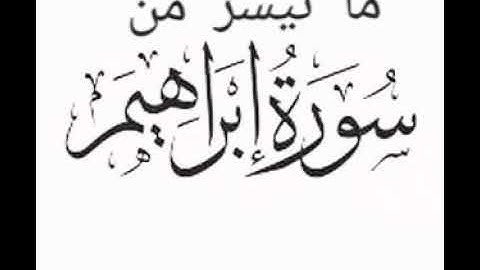 ما تيسر من
سُورَةُ إِبْرَاهِيمَ